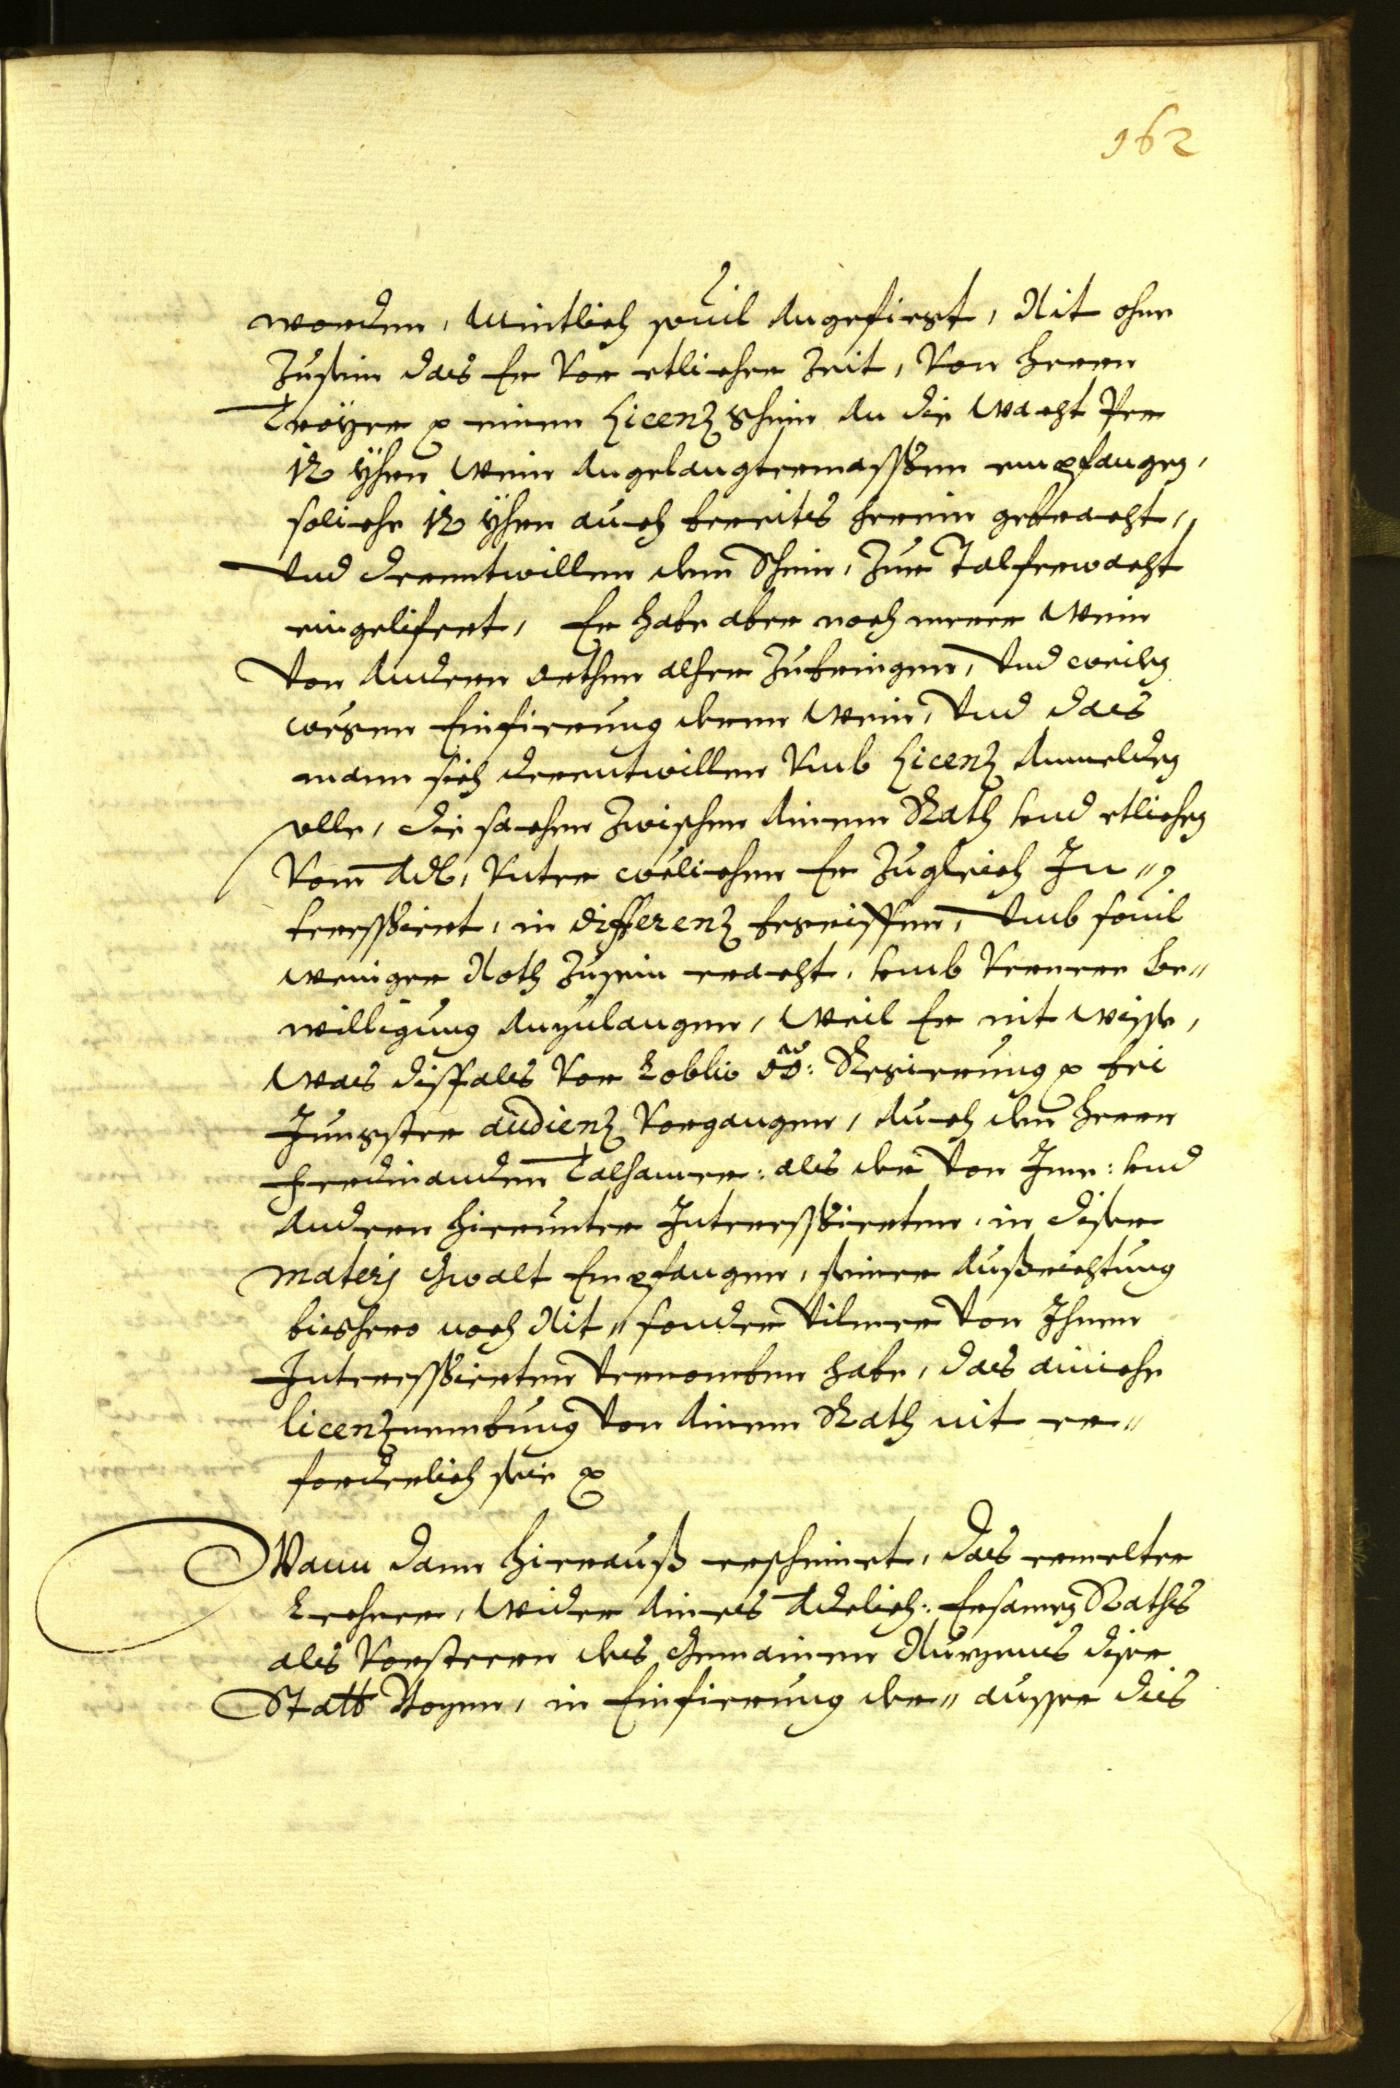 162
worden, Mintlich souil Angefiert, Nit ohne
Zusein das Er Vor etlicher Zeit, Von herrn
Troÿer ꝛc einen Licenz Schein An die Wacht Per
12 Yhrn Wein Angelangtermassen empfangen,
soliche 12 Yhrn auch bereits herein gebracht,
Vnd derentwillen den Schein, Zur Talferwacht
eingelifert, Er habe aber noch merer Wein
Von Andern orthen alher Zubringen, Vnd weilen
wegen Einfierung deren Wein, Vnd das
mann sich derentwillen Vmb Licenz Anmelden
solle, die sachen Zwischen Ainem Rath Vnd etlichen
Vom Adl, Vnter welichen Er Zugleich In„
teressiert, in differenz begriffen, Vmb souil
weniger Noth Zusein eracht, Vmb Verrere be„
willigung Anzulangen, Weil Er nit Wisse,
Was dissfals Vor Loblic: oö: Regierung ꝛc bei
Jungster audienz Vorgangen, Auch den herrn
Ferdinanden Talhamer: als der Von Jme: Vnd
Andern hierunter Interessierten, in diser
materj Gwalt Empfangen, seiner Außrichtung
bishero noch Nit„ sonder Vilmer Von Jhnen
Interessierten Vernomben habe, das ainiche
licenznembung Von Ainem Rath nit er„
forderlich seie ꝛc
Wann dann hierauß erscheinet, das ermelter
Lechner, Wider Aines Adelich: Ersamen Raths
als Vorsteern des Gemainen Nuzens diser
Statt Bozen, in Einfierung der„ ausser dis